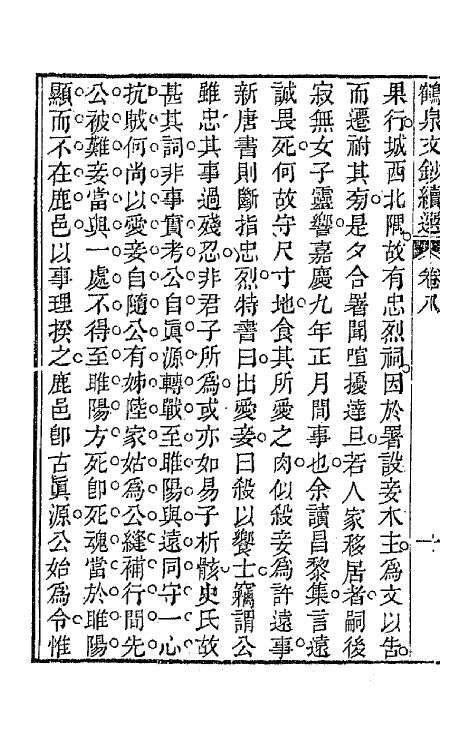 鶴泉文鈔續選 卷八 一
果行城西北隅故有忠烈祠因於署設妾木主爲文以告
而遷祔其旁是夕合署聞喧擾達旦若人家移居者嗣後
寂無女子靈響嘉慶九年正月間事也余讀昌黎集言遠
誠畏死何故守尺寸地食其所愛之肉似殺妾爲許遠事
新唐書則斷指忠烈特書曰出愛妾曰殺以饗士竊謂公
雖忠其事過殘忍非君子所爲或亦如易子析骸史氏故
甚其詞非事實考公自眞源轉戰至睢陽與遠同守一心
抗賊何尚以愛妾自隨公有姊陸家姑爲公縫補行間先
公被難妾當與一處不得至睢陽方死卽死魂當於睢陽
顯而不在鹿邑以事理揆之鹿邑卽古眞源公始爲令惟